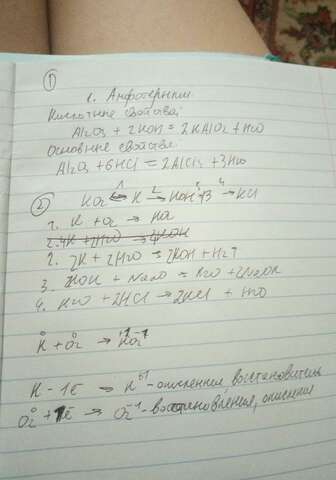 ①
1. Амфотерными
Кислотные свойства:
Al2O3 + 2KOH = 2KAlO2 + H2O
Основные свойства
Al2O3 + 6HCl = 2AlCl3 + 3H2O
②
KO2 K → KOH → KCl
1. K + O2 → KO2
2. 4K + 2H2O → 4KOH
2. 2K + 2H2O = 2KOH + H2↑
3. 2KOH + Na2O = K2O + 2NaOH
4. K2O + 2HCl → 2KCl + H2O
K + O2 → KO2
K - 1ē → K+1 - окисление, восстановитель
O2 + 1ē → O2-1 - восстановления, окисление